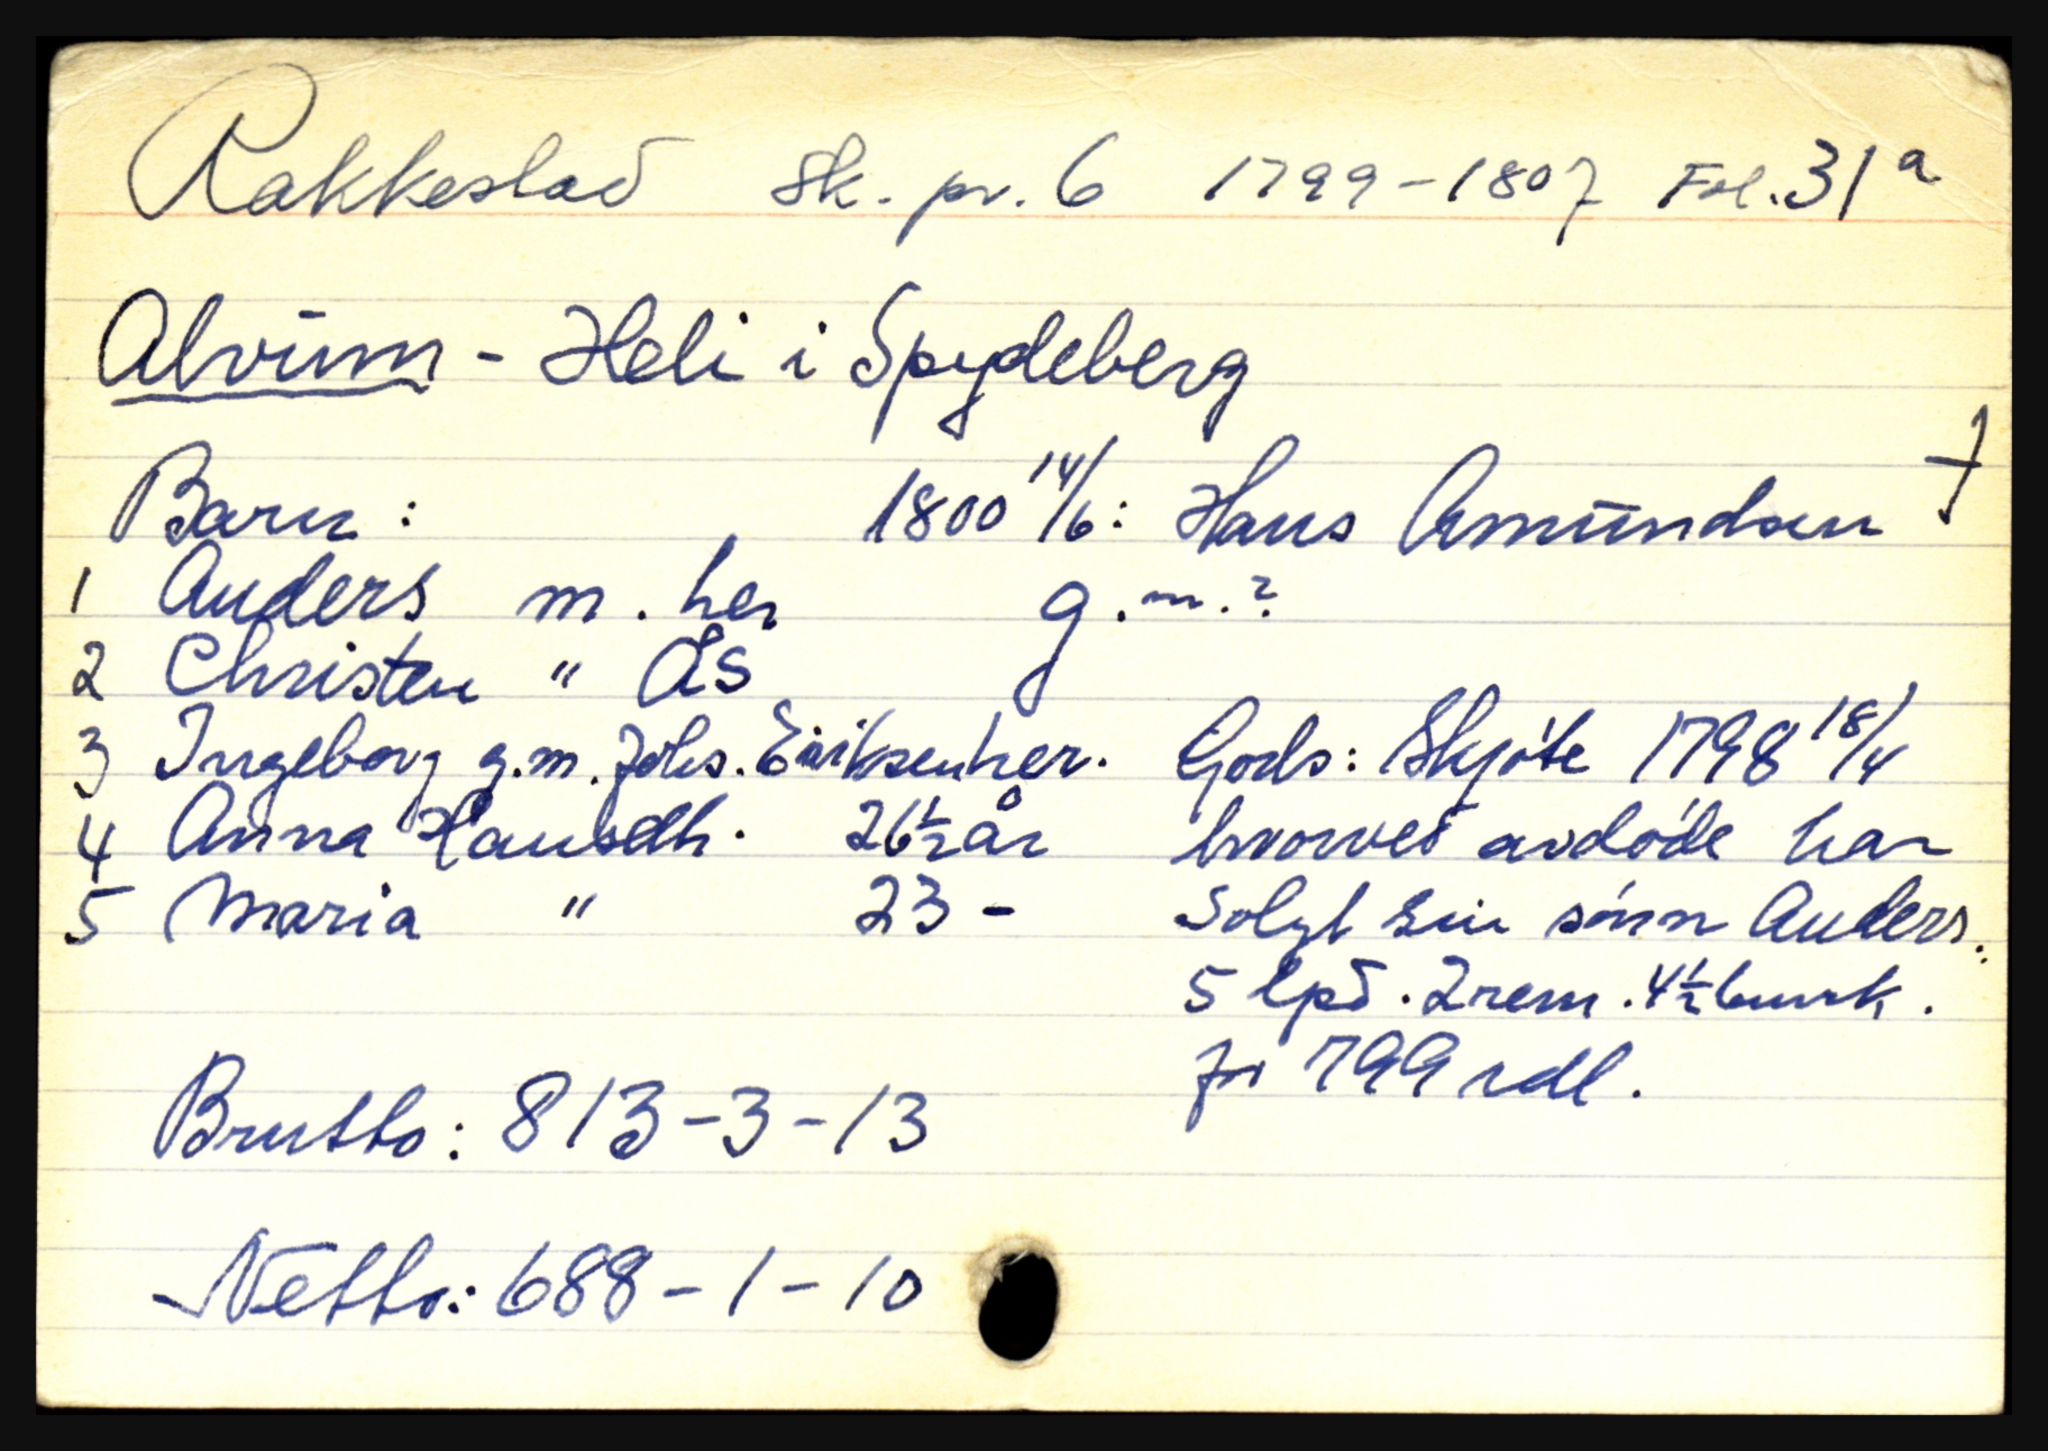 Rakkestad Sk. pr. 6 1799-1807 Fol. 31a
Alvim - Heli i Spydeberg
Barn: 1800 14/6: Hans Amundsen †
1 Anders m. her g.m.?
2 Christen " Ås
3 Ingeborg g.m. Johs. Eriksen her. Gods: Skjöte 1798 18/4
4 Anna Hansdh. 26½ år hvorved avdöde har
5 Maria " 23 - solgt sin sönn Anders:
5 lpd. 2 rem. 4½ bmrk.
for 799 rdl.
Brutto: 813-3-13
Netto: 688-1-10